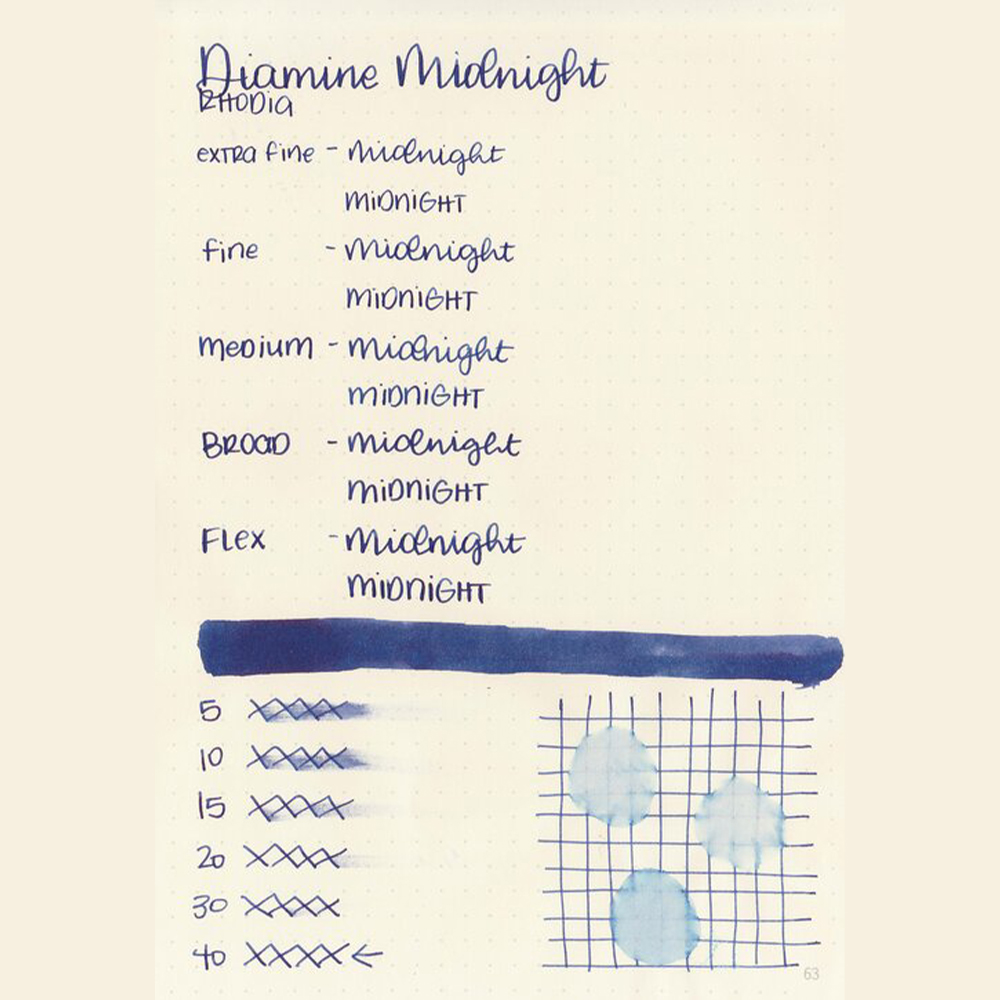 Diamine Midnight
RHODIA
extra fine - Midnight
MIDNIGHT
fine - Midnight
MIDNIGHT
medium - Midnight
MIDNIGHT
BROAD - Midnight
MIDNIGHT
FLEX - Midnight
MIDNIGHT
5 XXXX
10 XXXX
15 XXXX
20 XXXX
30 XXXX
40 XXXX ←
63